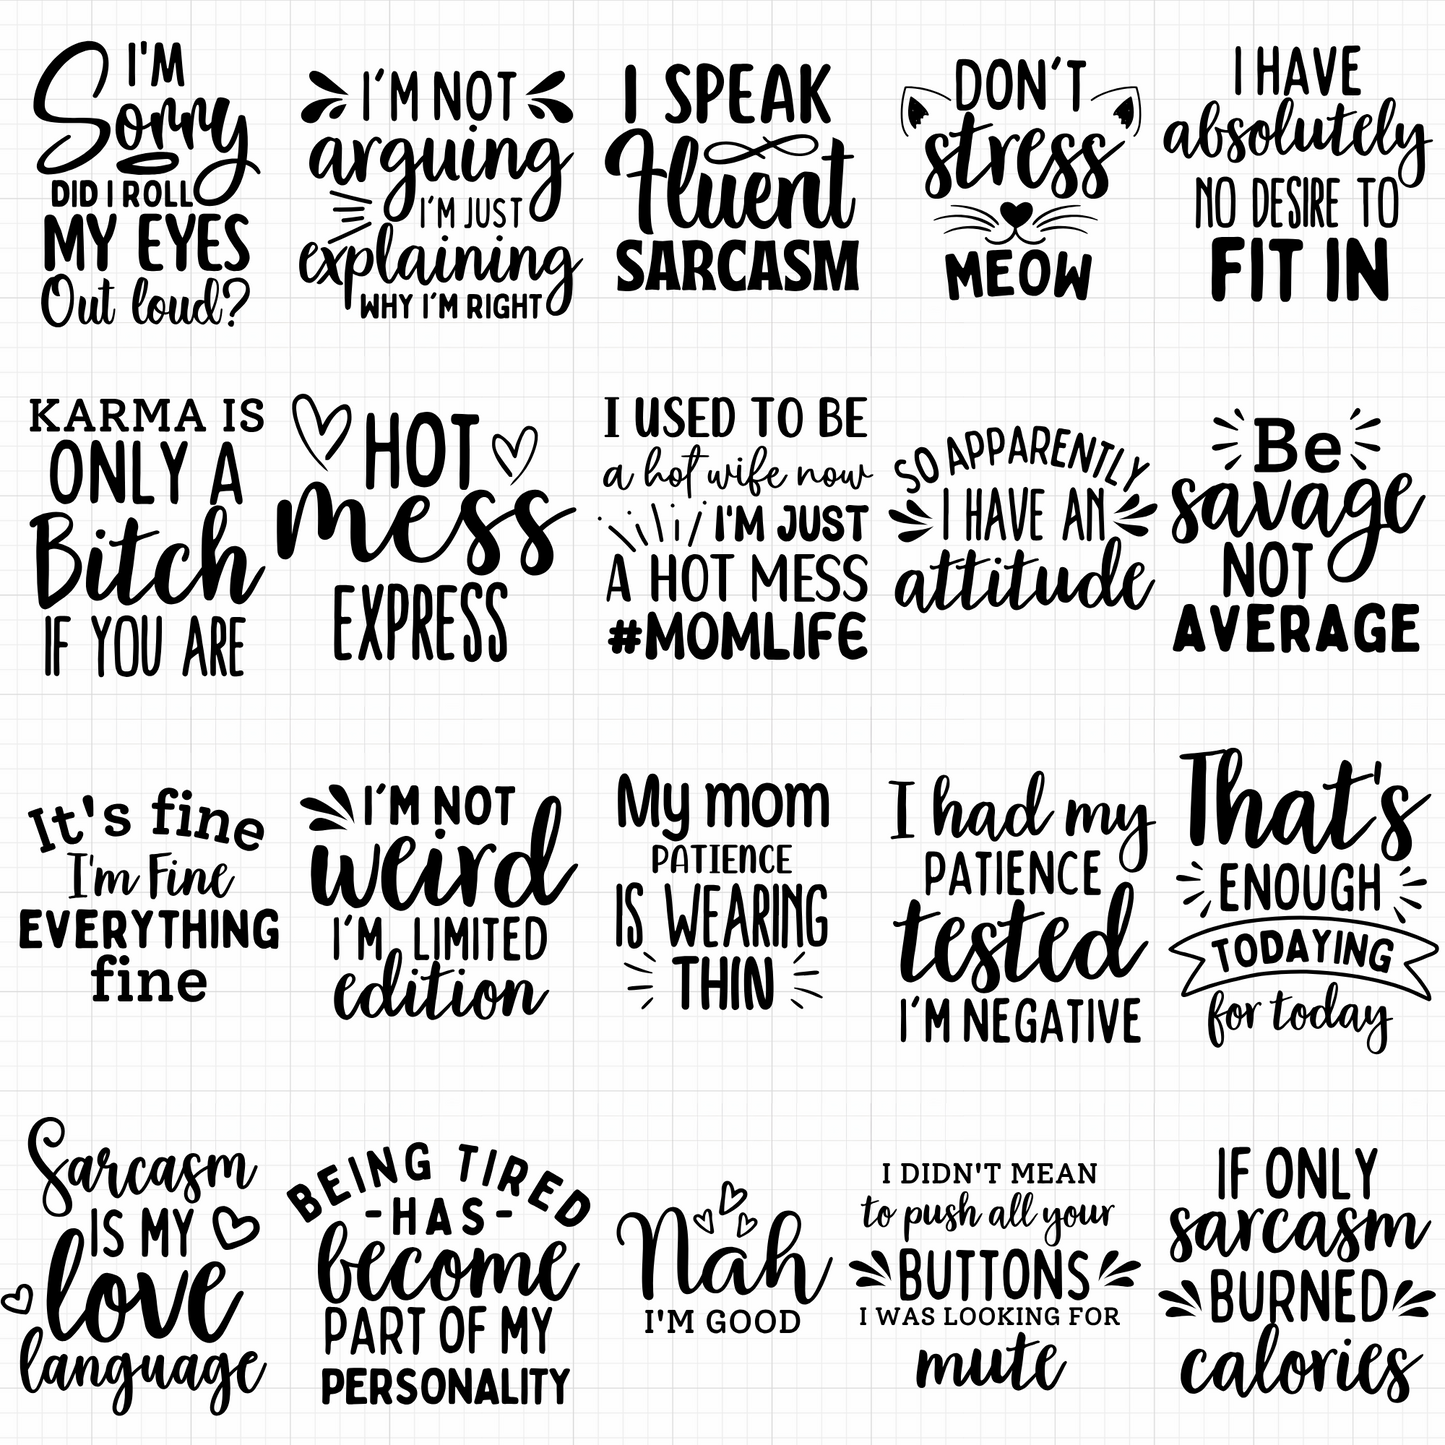 I'M
Sorry
DID I ROLL
MY EYES
Out loud?
I'M NOT
arguing
I'M JUST
explaining
WHY I'M RIGHT
I SPEAK
Fluent
SARCASM
DON'T
stress
MEOW
I HAVE
absolutely
NO DESIRE TO
FIT IN
KARMA IS
ONLY A
Bitch
IF YOU ARE
HOT
mess
EXPRESS
I USED TO BE
a hot wife now
I'M JUST
A HOT MESS
#MOMLIFE
SO APPARENTLY
I HAVE AN
attitude
Be
savage
NOT
AVERAGE
It's fine
I'm Fine
EVERYTHING
fine
I'M NOT
weird
I'M LIMITED
edition
My mom
PATIENCE
IS WEARING
THIN
I had my
PATIENCE
tested
I'M NEGATIVE
That's
ENOUGH
TODAYING
for today
Sarcasm
IS MY
love
language
BEING TIRED
-HAS-
become
PART OF MY
PERSONALITY
Nah
I'M GOOD
I DIDN'T MEAN
to push all your
BUTTONS
I WAS LOOKING FOR
mute
IF ONLY
sarcasm
BURNED
calories